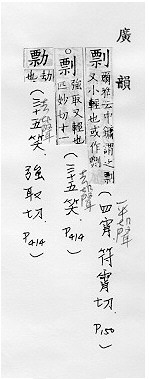 廣韻
剽 爾雅云中鏞謂之剽
又小輕也或作㓼 四宵 符宵切. P150
平聲
。剽 強取又輕也
匹妙切十一 (三十五笑. P414)
去聲
勡 劫
也 (三十五笑. 強取切. P414)
去聲